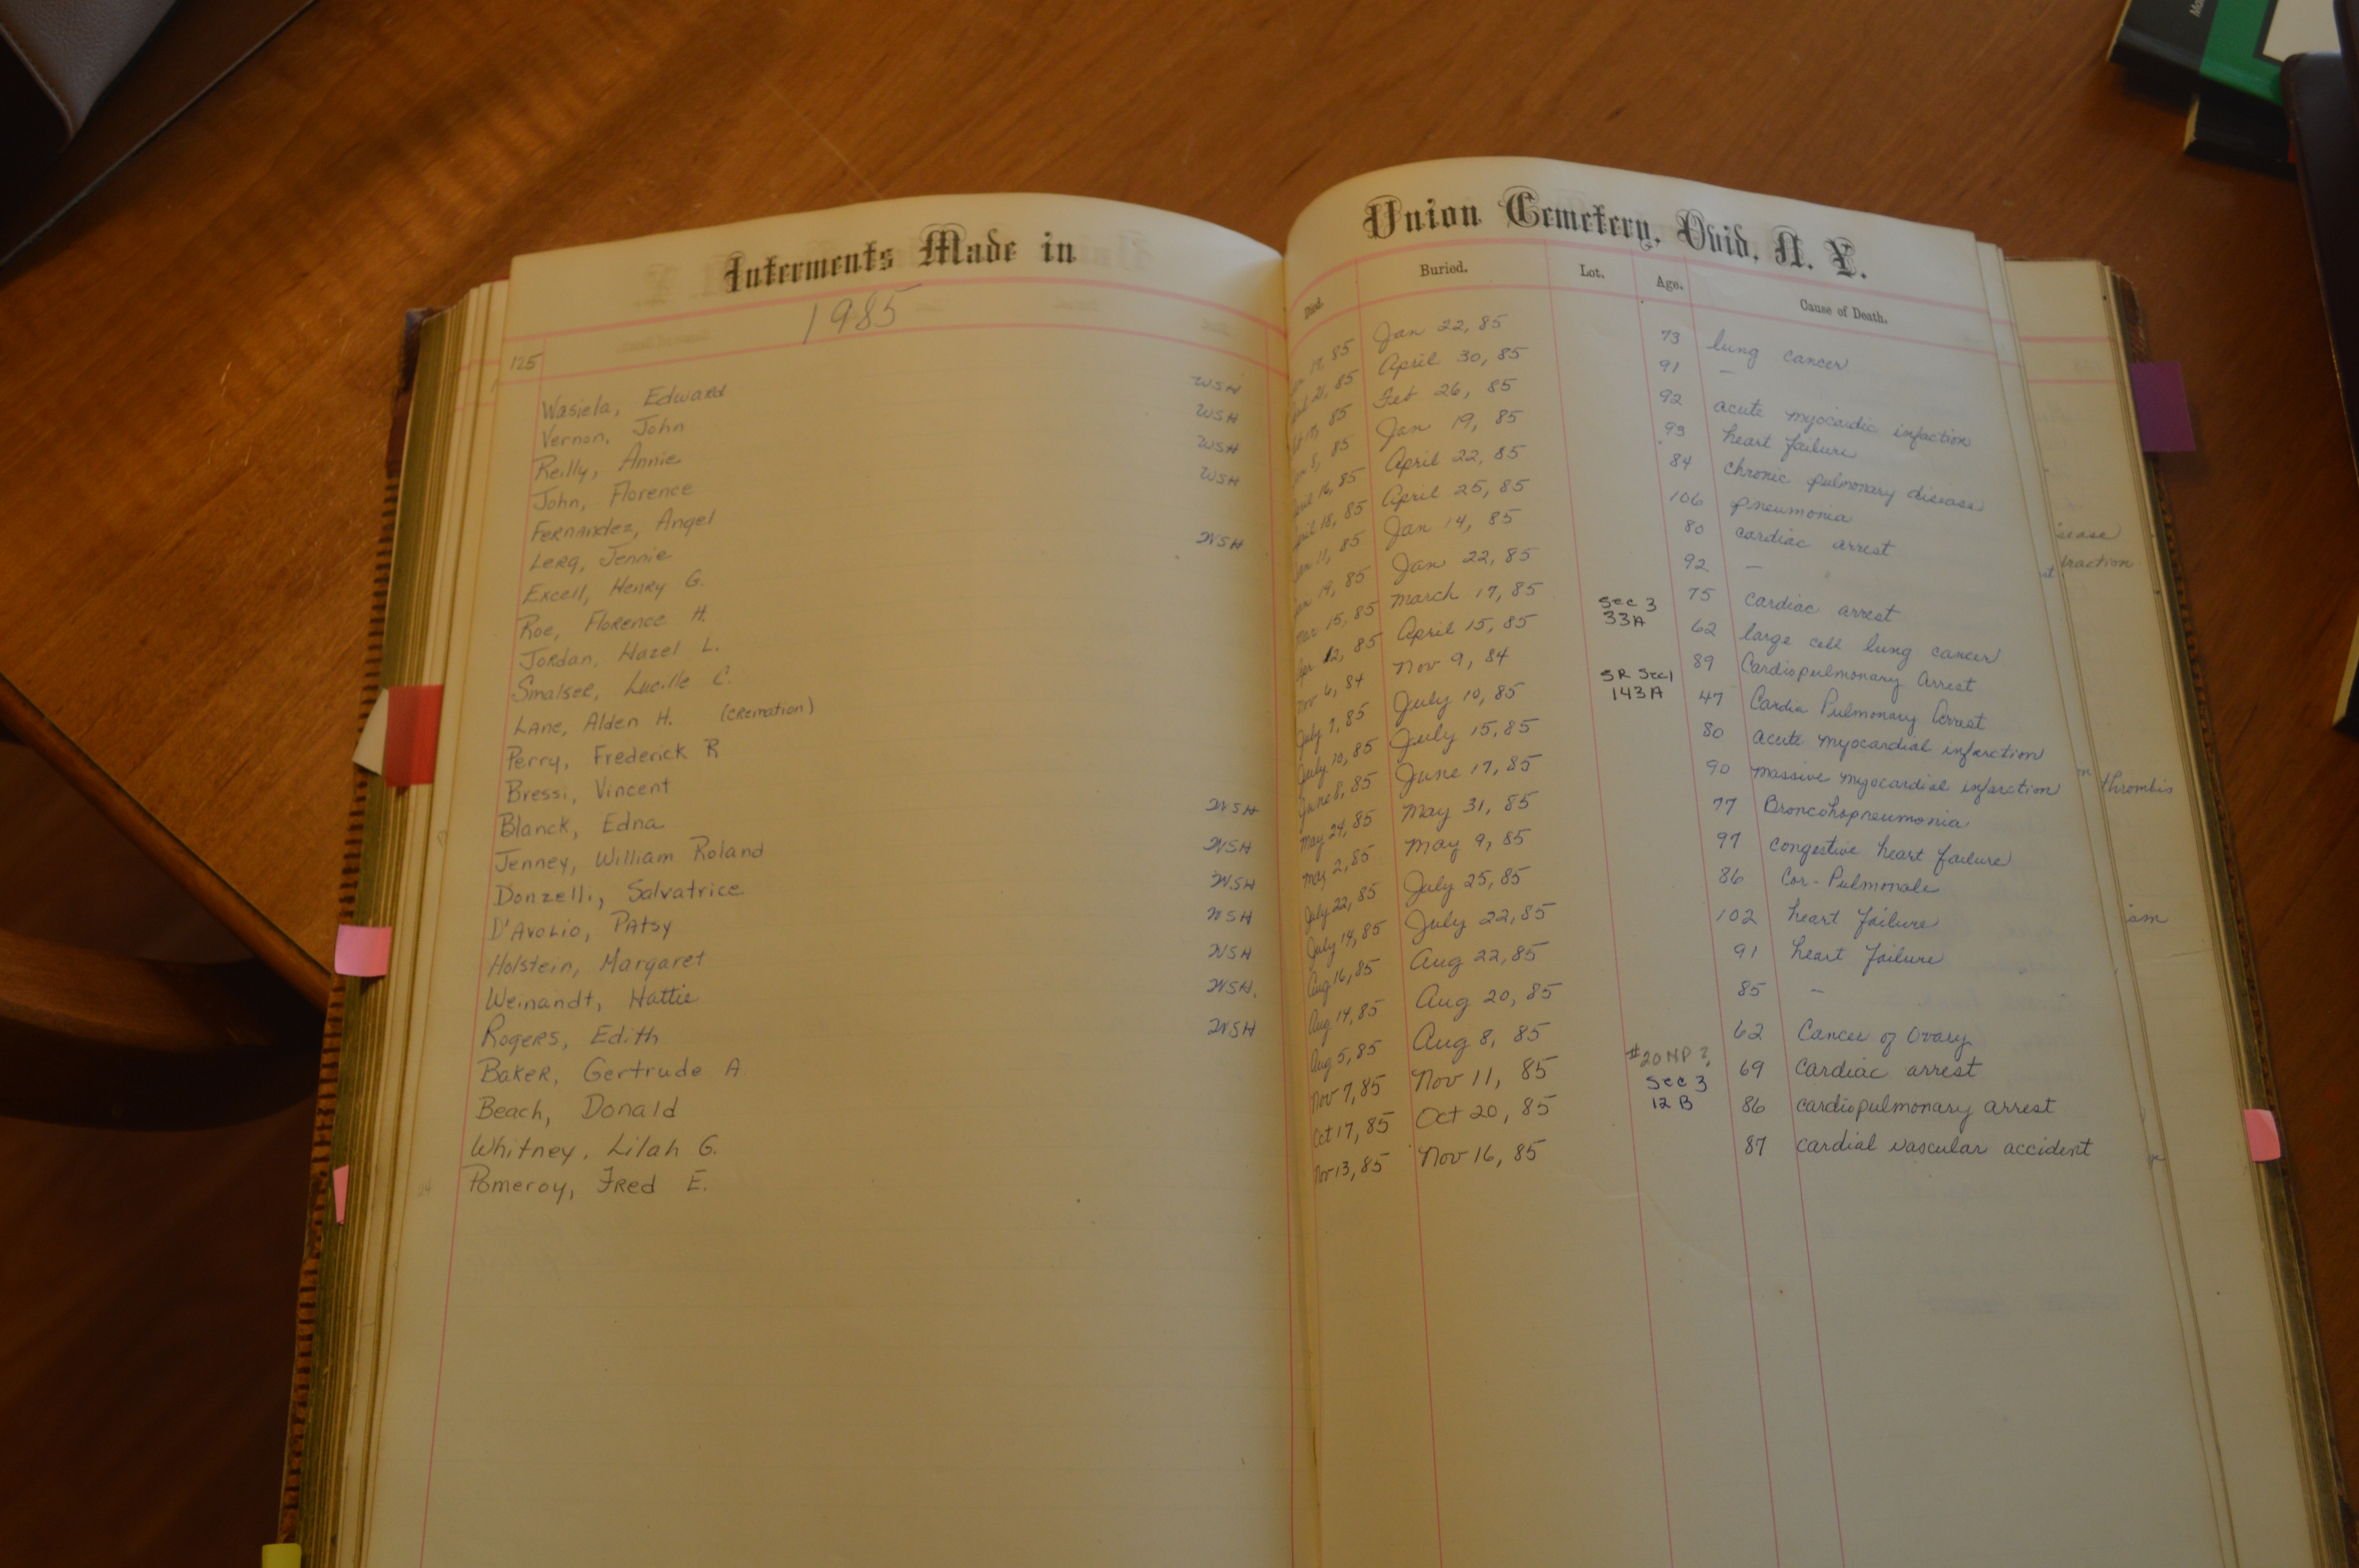 Interments Made in
1985
125
Wasiela, Edward WSH
Vernon, John WSH
Reilly, Annie WSH
John, Florence WSH
Fernandez, Angel
Lerq, Jennie WSH
Excell, Henry G.
Roe, Florence H.
Jordan, Hazel L.
Smalser, Lucille C.
Lane, Alden H. (cremation)
Perry, Frederick R
Bressi, Vincent
Blanck, Edna WSH
Jenney, William Roland WSH
Donzelli, Salvatrice WSH
D'Avolio, Patsy WSH
Holstein, Margaret WSH
Weinandt, Hattie WSH.
Rogers, Edith WSH
Baker, Gertrude A
Beach, Donald
Whitney, Lilah G.
Pomeroy, Fred E.
24
Union Cemetery, Ovid, N. Y.
Died. Buried. Lot. Age. Cause of Death.
85 Jan 22, 85 73 lung cancer
21, 85 April 30, 85 91 —
85 Feb 26, 85 92 acute myocardic infaction
85 Jan 19, 85 93 heart failure
16, 85 April 22, 85 84 chronic pulmonary disease
18, 85 April 25, 85 106 pneumonia
11, 85 Jan 14, 85 80 cardiac arrest
19, 85 Jan 22, 85 92 —
Mar 15, 85 March 17, 85 75 cardiac arrest
Apr 12, 85 April 15, 85 Sec 3 33A 62 large cell lung cancer
Nov 6, 84 Nov 9, 84 89 Cardiopulmonary Arrest
July 7, 85 July 10, 85 SR Sec1 143A 47 Cardia Pulmonary Arrest
July 10, 85 July 15, 85 80 acute myocardial infarction
June 8, 85 June 17, 85 90 massive myocardial infarction
May 24, 85 May 31, 85 77 Broncohopneumonia
May 2, 85 May 9, 85 97 congestive heart failure
July 22, 85 July 25, 85 86 Cor-Pulmonale
July 19, 85 July 22, 85 102 heart failure
Aug 16, 85 Aug 22, 85 91 heart failure
Aug 14, 85 Aug 20, 85 85 —
Aug 5, 85 Aug 8, 85 62 Cancer of Ovary
Nov 7, 85 Nov 11, 85 #20 NP? 69 Cardiac arrest
Oct 17, 85 Oct 20, 85 Sec 3 12 B 86 cardiopulmonary arrest
Nov 13, 85 Nov 16, 85 87 cardial vascular accident
sease
fraction
thrombis
ism